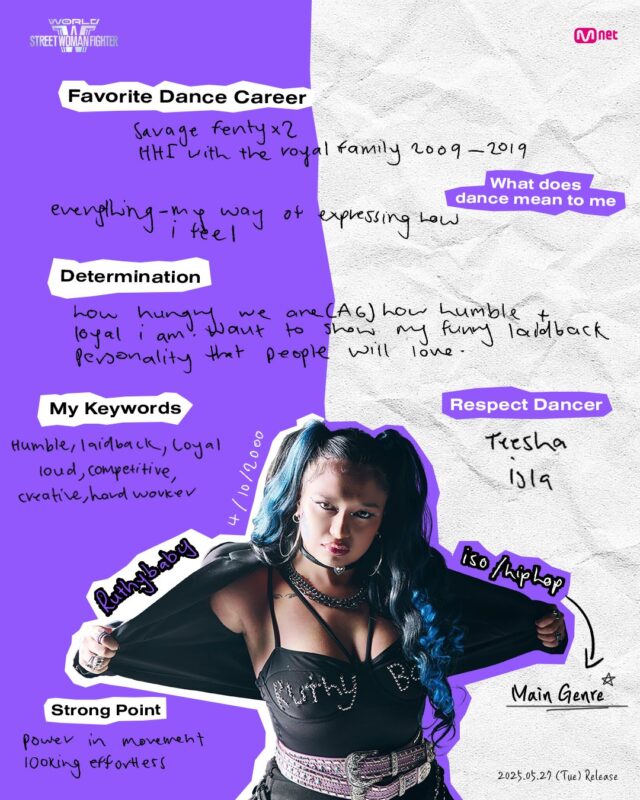 WORLD
W
STREET WOMAN FIGHTER
Mnet
Favorite Dance Career
Savage fenty x2
HHI with the royal family 2009-2019
What does
dance mean to me
everything-my way of expressing how
i feel
Determination
how hungry we are (AG) how humble +
loyal i am. want to show my funny laidback
personality that people will love.
My Keywords
Humble, laidback, Loyal
loud, competitive,
creative, hard worker
Respect Dancer
Teesha
isla
4/10/2000
Ruthybaby
iso/hiphop
Main Genre
Ruthy Ba
Strong Point
power in movement
looking effortless
2025.05.27 (Tue) Release